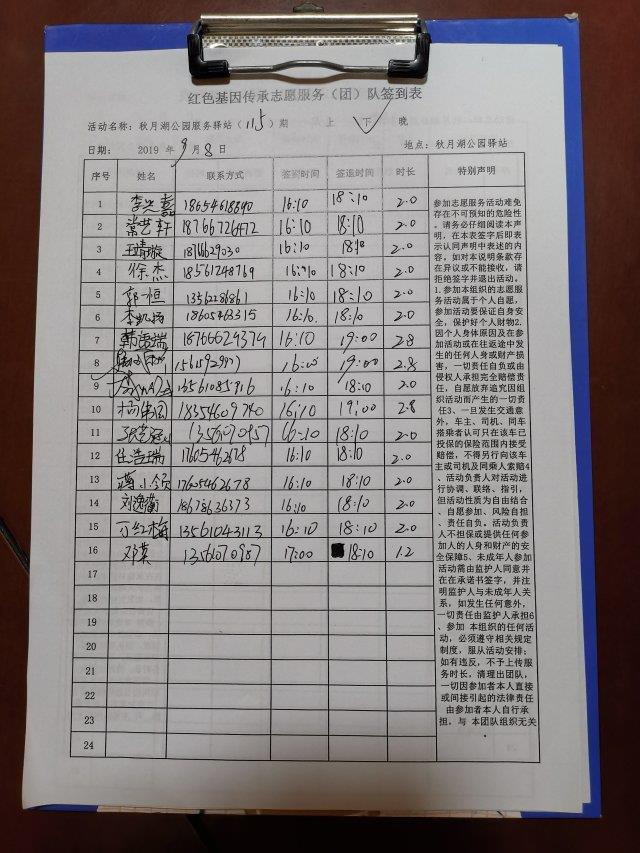 红色基因传承志愿服务（团）队签到表
活动名称：秋月湖公园服务驿站（115）期 上 下 晚
日期： 2019 年 9 月 8 日 地点：秋月湖公园驿站
序号 姓名 联系方式 签到时间 签退时间 时长 特别声明
1 16:10 18:10 2.0
2 常艺轩 16:10 18:10 2.0
3 王靖璇 1816629030 16:10 2.0
4 徐杰 18561248769 16:10 18:10 2.0
5 郭恒 16:10 18:10 2.0
6 李凯扬 18605463315 16:10 18:10 2.0
7 18766629374 16:10 19:00 2.8
8 19:00 2.8
9 13561085916 16:10 18:10 2.0
10 18354609740 16:10 19:00 2.8
11 18:10 2.0
12 任浩瑞 16:10 18:10 2.0
13 17605462678 16:10 18:10 2.0
14 18678636373 16:10 18:10 2.0
15 万红梅 13561043113 16:10 18:10 2.0
16 邓英 17:00 18:10 1.2
17
18
19
20
21
22
23
24
参加志愿服务活动难免
存在不可预知的危险性
。请务必仔细阅读本声
明，在本表签字后即表
示认同声明中表述的
内容，如对本说明条款存
在异议或不能接收，请
拒绝签字并退出活动。
1.参加本组织的志愿服
务活动属于个人自愿，
参加活动要保证自身安
全，保护好个人财物2.
因个人身体原因及在参
加活动或在往返途中发
生的任何人身或财产损
害，一切责任自负或由
侵权人承担完全赔偿责
任，自愿放弃追究因组
织活动而产生的一切责
任3、一旦发生交通意
外，车主、司机、同车
搭乘者认可只在该车已
投保的保险范围内接受
赔偿，不得另行向该车
主或司机及同乘人索赔4
、活动负责人对活动进
行协调、联络、指引，
但活动性质为自由结合
、自愿参加、风险自担
、责任自负。活动负责
人不担保或提供任何参
加人的人身和财产的安
全保障5、未成年人参加
活动需由监护人同意并
在在承诺书签字，并注
明监护人与未成年人关
系，如发生任何意外，
一切责任由监护人承担6
、参加 本组织的任何活
动，必须遵守相关规定
制度，服从活动安排；
如有违反，不予上传服
务时长，清理出团队，
一切因参加者本人直接
或间接引起的法律责任
由参加者本人自行承
担，与 本团队组织无关